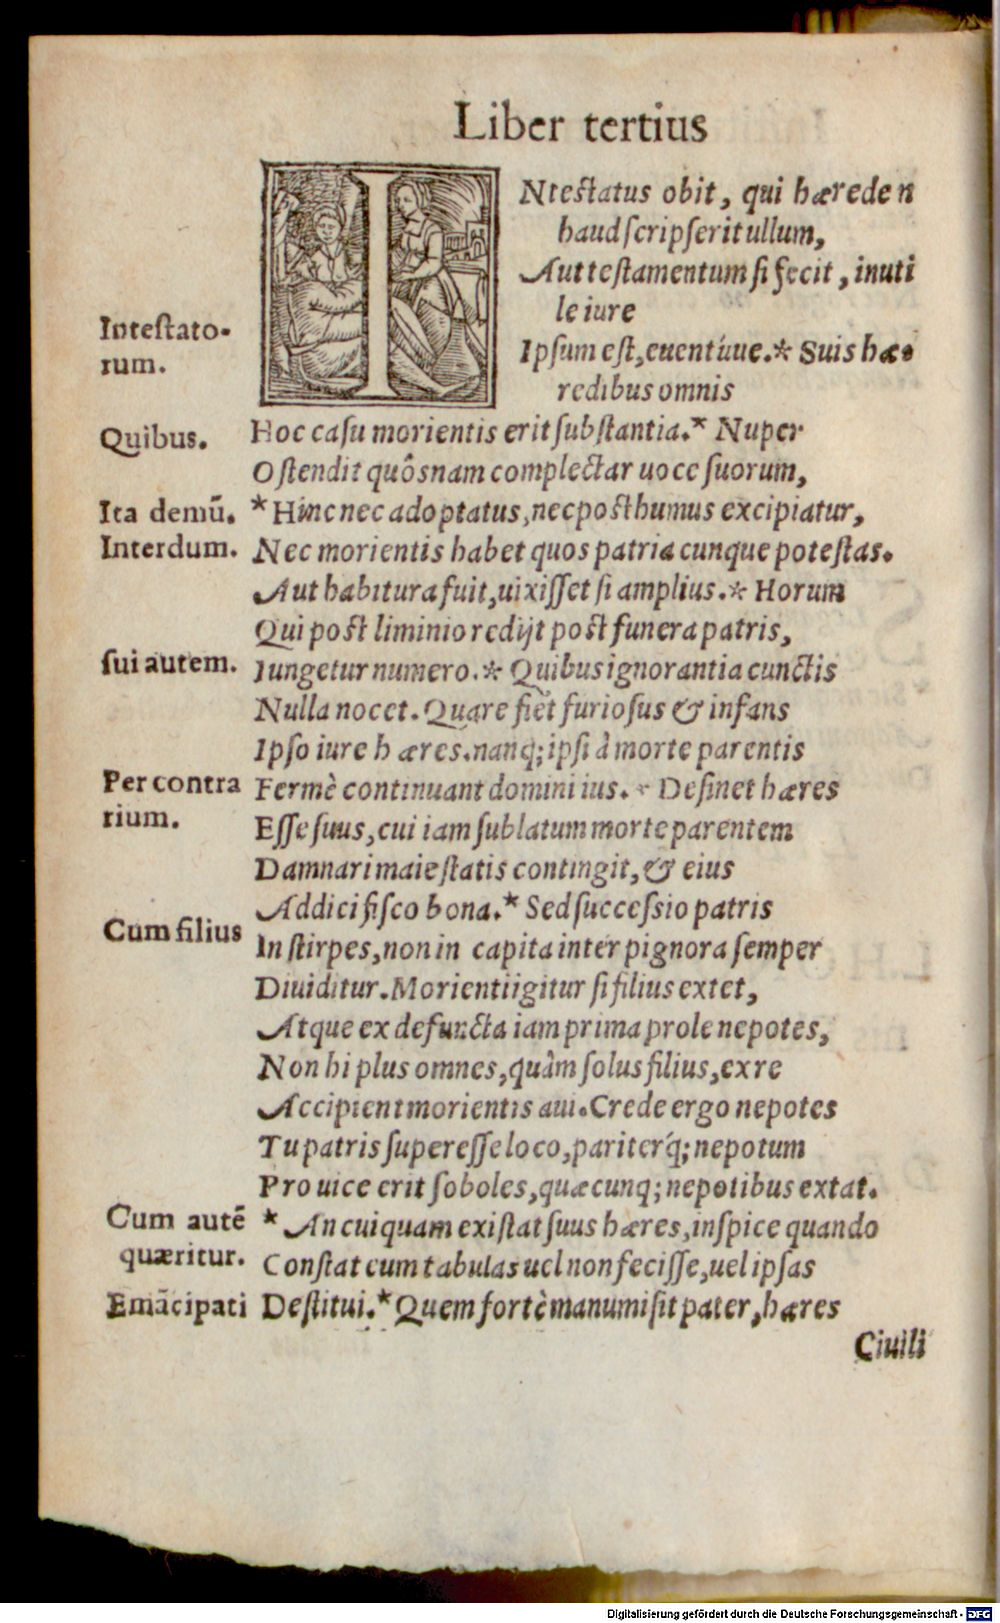 Liber tertius
INtestatus obit, qui hæreden
haud scripserit ullum,
Aut testamentum si fecit, inuti
le iure
Intestato-
rum.
Ipsum est, euentúue.* Suis hæ-
redibus omnis
Quibus. Hoc casu morientis erit substantia.* Nuper
Ostendit quôsnam complectar uoce suorum,
Ita demū. *Hinc nec adoptatus, nec posthumus excipiatur,
Interdum. Nec morientis habet quos patria cunque potestas.
Aut habitura fuit, uixisset si amplius.* Horum
Qui post liminio redijt post funera patris,
sui autem. Iungetur numero.* Quibus ignorantia cunctis
Nulla nocet. Quare fiet furiosus & infans
Ipso iure hæres. nanq; ipsi à morte parentis
Per contra
rium.
Fermè continuant domini ius. * Desinet hæres
Esse suus, cui iam sublatum morte parentem
Damnari maiestatis contingit, & eius
Addici fisco bona.* Sed successio patris
Cum filius In stirpes, non in capita inter pignora semper
Diuiditur. Morienti igitur si filius extet,
Atque ex defuncta iam prima prole nepotes,
Non hi plus omnes, quàm solus filius, ex re
Accipient morientis aui. Crede ergo nepotes
Tu patris superesse loco, pariterq́; nepotum
Pro uice erit soboles, quæcunq; nepotibus extat.
Cum autē
quæritur.
* An cuiquam existat suus hæres, inspice quando
Constat eum tabulas uel non fecisse, uel ipsas
Emācipati Destitui.* Quem fortè manumisit pater, hæres
Ciuili
Digitalisierung gefördert durch die Deutsche Forschungsgemeinschaft - DFG